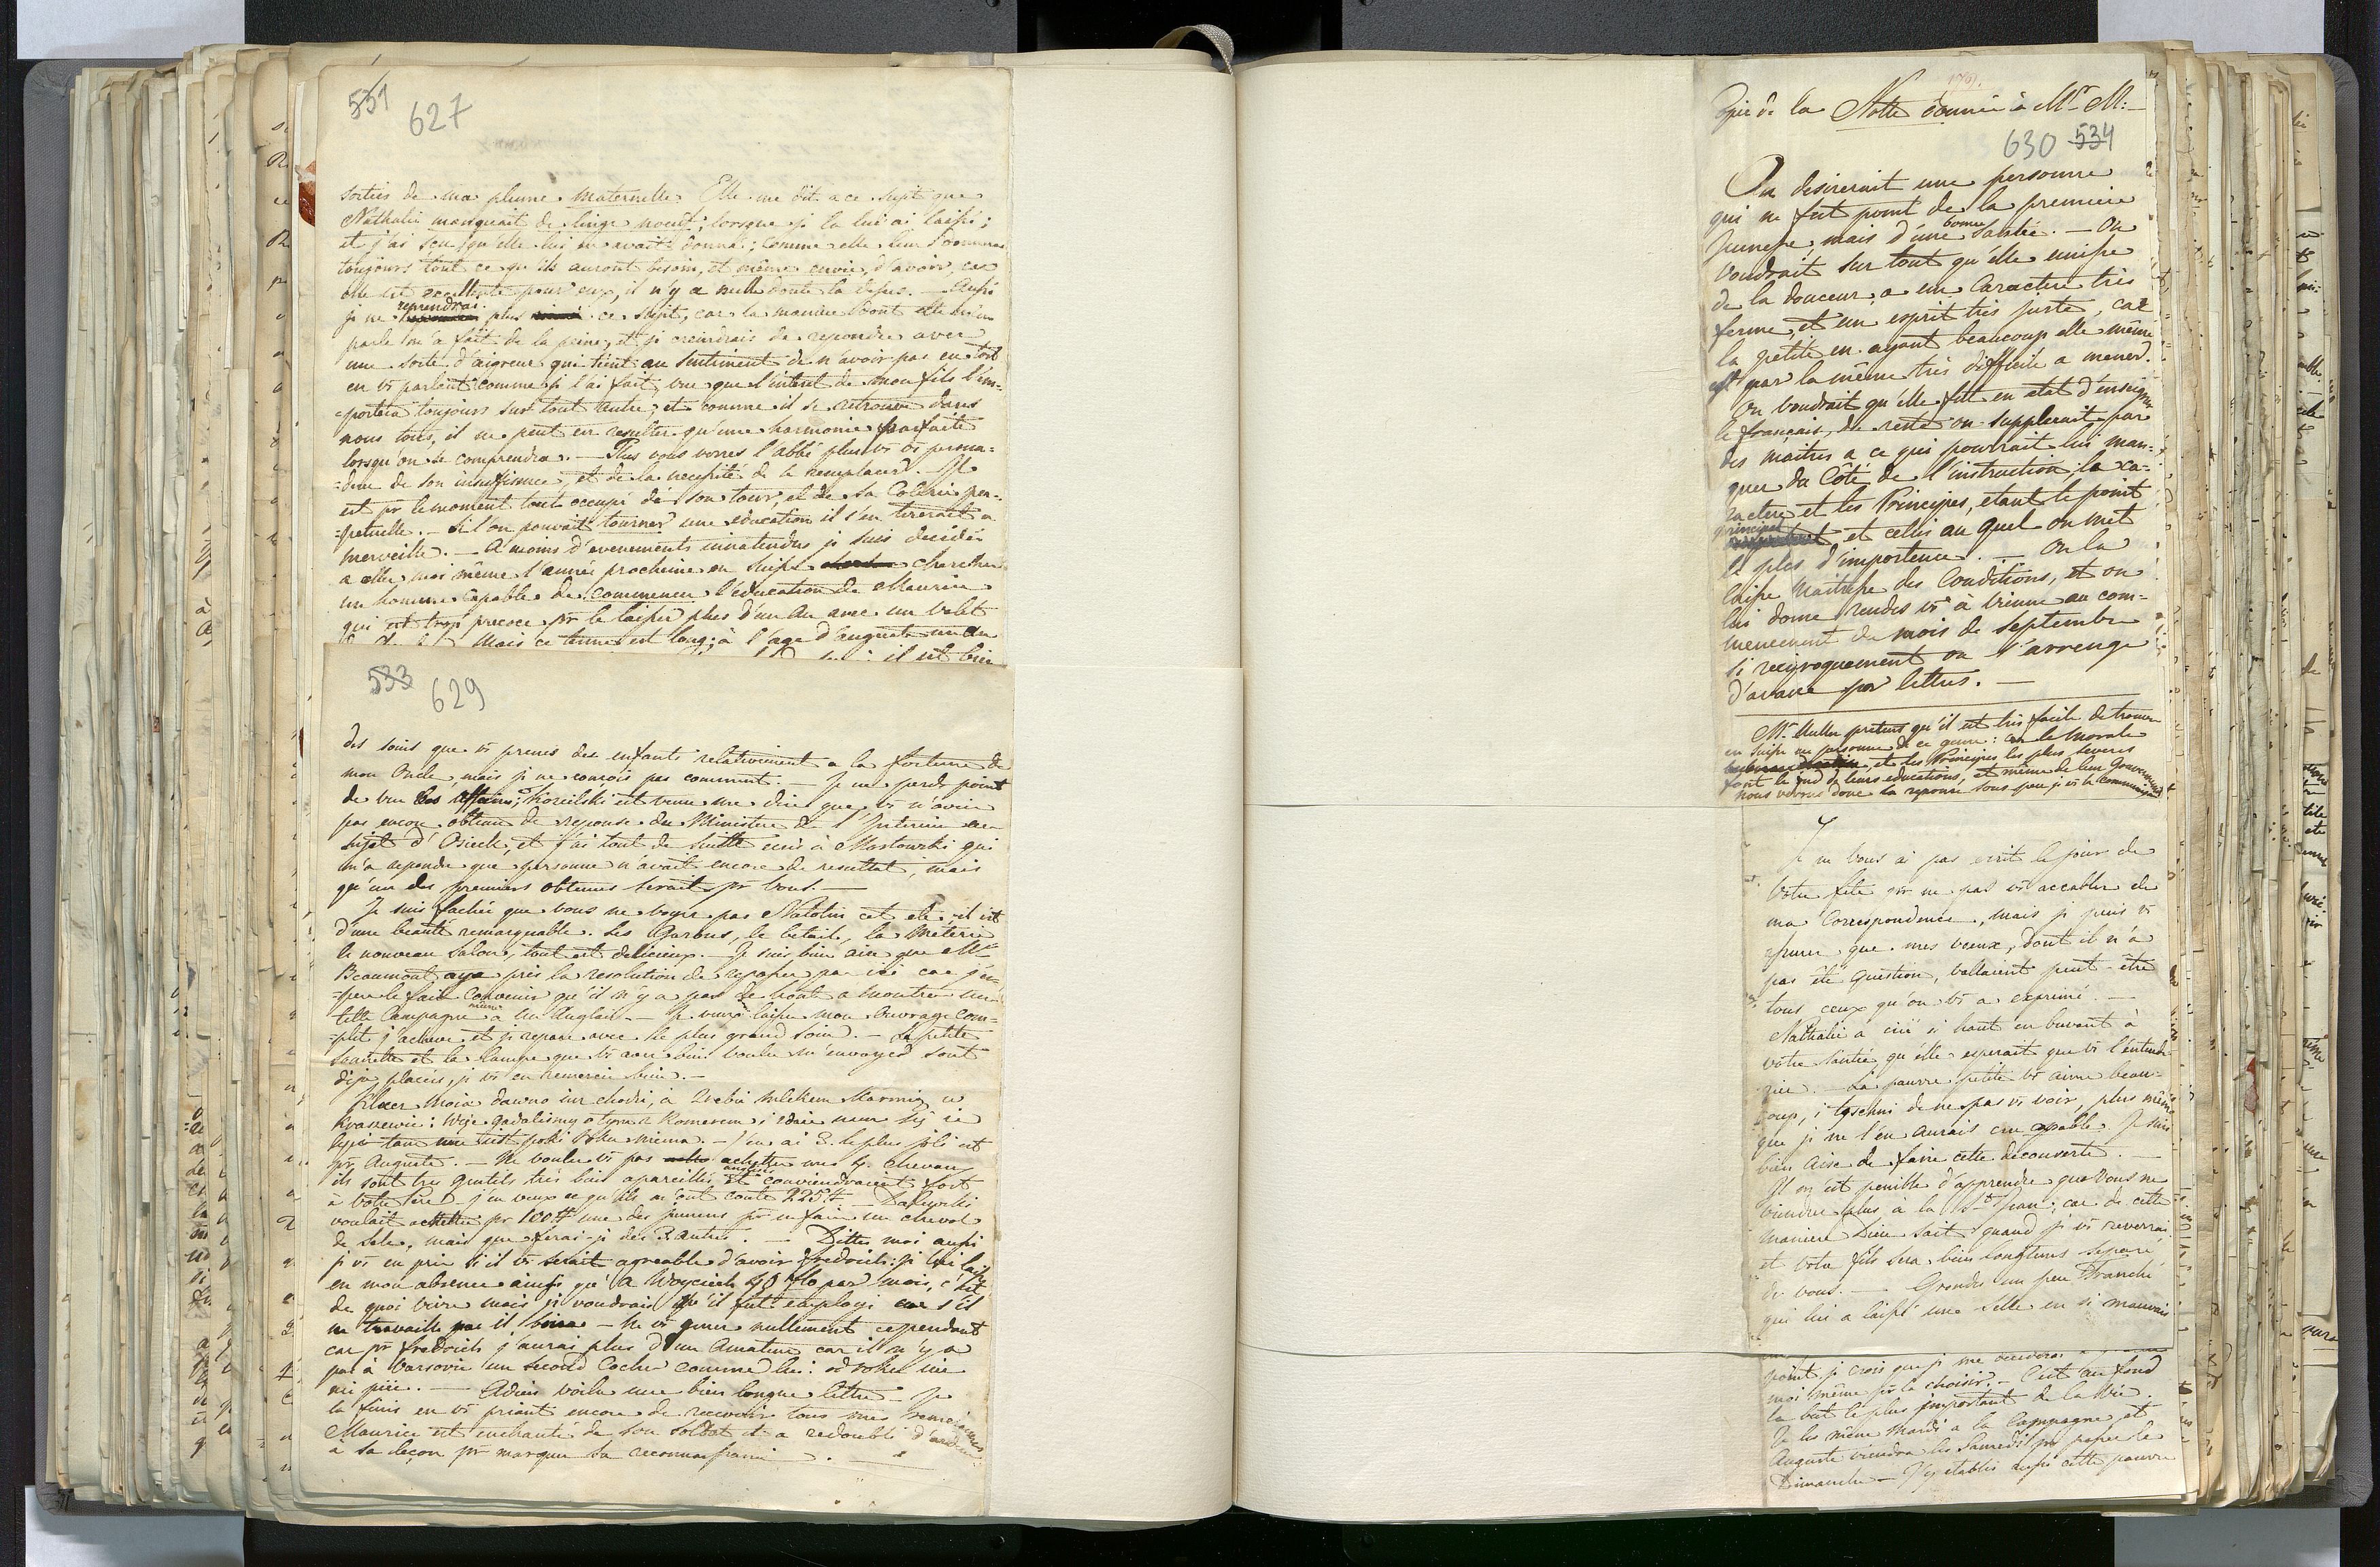 551
627
sorties de ma plume maternelle. Elle me dit a ce sujet que
Nathalie manquait de linge lorsque je la lui ai laissé;
et j'ai seu qu'elle lui en avait donné; comme elle leur donnera
toujours tout ce qu'ils auront besoin, et même envie, d'avoir, car
elle est excellente pour eux, il n'y a nulle doute la dessus. — Aussi
je ne reprendrai plus ce sujet, car la maniere dont elle m'en
parle m'a fait de la peine, et je creindrais de repondre avec
une sorte d'aigreur qui tient au sentiment de n'avoir pas eu tort
en vs parlant comme je l'ai fait, vue que l'interet de mon fils l'em=
=portera toujours sur tout autre; et comme il se retrouve dans
nous tous, il ne peut en resulter qu'une harmonie parfaite
lorsqu'on se comprendra. — Plus vous verres l'abbé plus vs vs persua=
=deres de son insuffisance, et de la necessité de le remplacer. Il
est pr le moment tout occupé de son tour, et de sa Colerie per=
=petuelle. — Si l'on pouvait tourner une education il s'en tirerait a
merveille. — A moins d'evenements innatendus je suis decidée
a aller moi même l'année prochaine en Suisse chercher
un homme capable de commencer l'éducation de Maurice
qui est trop precoce pr le laisser plus d'un an avec un valet
Mais ce terme est long; à l'age d'auguste un an
il est bien
533
629
des soins que vs prenes des enfants relativement a la fortune de
mon Oncle, mais je ne conçois pas comment. — Je ne perds point
de vue les affaires; Kozielski est venu me dire que vs n'avies
pas encore obtenu de reponse du Ministere de l'Interieur au
sujet d'Osieck, et j'ai tout de suitte ecris à Mostowski qui
m'a repondu que personne n'avait encore de resultat, mais
qu'un des premiers obtenus serait pr vous. —
Je suis fachée que vous ne voyies pas Natolin cet été, il est
d'une beauté remarquable. Les Garbus, le betail, la Méterie
le nouveau Salon, tout est delicieux. — Je suis bien aise que Mr
Beaumont aye pris la resolution de repasser par ici car j'es=
=pere le faire convenir qu'il n'y a pas de honte a montrer une
telle Campagne même à un Anglais. — Je veux laisser mon Ouvrage com=
=plet j'acheve et je repare avec le plus grand soin. — La petite
et la lampe que vs aves bien voulu m'envoyer sont
deja placées, je vs en remercie bien. —
Klacz moia dawno iuż chodzi, a Zrebie mlekiem karmią w
j'en ai 3. le plus joli est
pr Auguste. — Ne voules vs pas achetter mes 4. chevaux
ils sont tres gentils très bien apareillés et conviendraient fort
à votre Pere j'en veux ce qu'ils m'ont couté 225#
voulait achetter pr 100# une des jumens pr en faire un cheval
de Selle, mais que ferai-je des 3 autres. — Dittes moi aussi
je vs en prie si il vs serait agreable d'avoir fredrich: je lui laisse
en mon absence ainsi qu'a Woyciech 40 flo par mois, c'est
de quoi vivre mais je voudrais qu'il fut employé car s'il
ne travaille pas il boira — Ne vs gener nullement cependant
car pr fredrich j'aurai plus d'un Amateur car il n'y a
pas à Varsovie un second Cocher comme lui: od roku nie
nie piie. — Adieu voila une bien longue lettre. Je
la finis en vs priant encore de recevoir tous mes remerciemens
Maurice est enchanté de son soldat et a redoublé d'ardeur
à sa leçon pr marquer sa reconnaissance. —
Copie de la Notte donnée à Mr M:
630 534
On desirerait une personne
qui ne fut point de la premiere
jeunesse, mais d'une bonne santée. — On
voudrait sur tout qu'elle unisse
de la douceur, a un Caractere très
ferme, et un esprit très juste, car
la petite en ayant beaucoup elle même
est par la même très difficile a mener.
On voudrait qu'elle fut en etat d'enseigner
le français, du reste on suppleerait par
des maitres a ce qui pourrait lui man=
quer du Côté de l'instruction, le ca=
ractere et les Principes, etant le point
principal et celui au quel on met
le plus d'importence. — On la
laisse Maitresse des Conditions, et on
lui donne rendes vs à Vienne au com=
mencement du mois de Septembre
si reciproquement on s'arrenge
d'avance par lettres. —
Mr Muller pretens qu'il est très facile de trouver
en Suisse une personne de ce genre: car la Morale
et les Principes les plus severes
font le fond de leurs educations, et même de leur Gouvernement
nous verrons donc la reponse sous peu je vs la communiquerai
Je ne vous ai pas ecrit le jour de
Votre fete pr ne pas vs accabler de
ma Correspondence, mais je puis vs
assurer que mes voeux, dont il n'a
pas été question, vallaient peut-être
tous ceux qu'on vs a exprimé. —
Nathalie a crié si haut en buvant à
votre Santée qu'elle esperait que vs l'entendr
iez. — La pauvre petite vs aime beau=
coup, i teschni de ne pas vs voir, plus même
que je ne l'en aurais cru capable. Je suis
bien aise de faire cette decouverte. —
Il m'est penible d'apprendre que vous ne
viendres plus à la St Jean; car de cette
maniere Dieu sait quand je vs reverrai
et votre fils sera bien longtems separé
de vous. — Grondes un peu Franche
qui lui a laissé une Selle en si mauvais
point je crois que je me deciderai
moi même pr le choisir. — C'est au fond
le but le plus important de la Vie.
Je les mène Mardi a la Campagne et
Auguste viendra les Samedi pr passer le
Dimanche — J'y etablis aussi cette pauvre